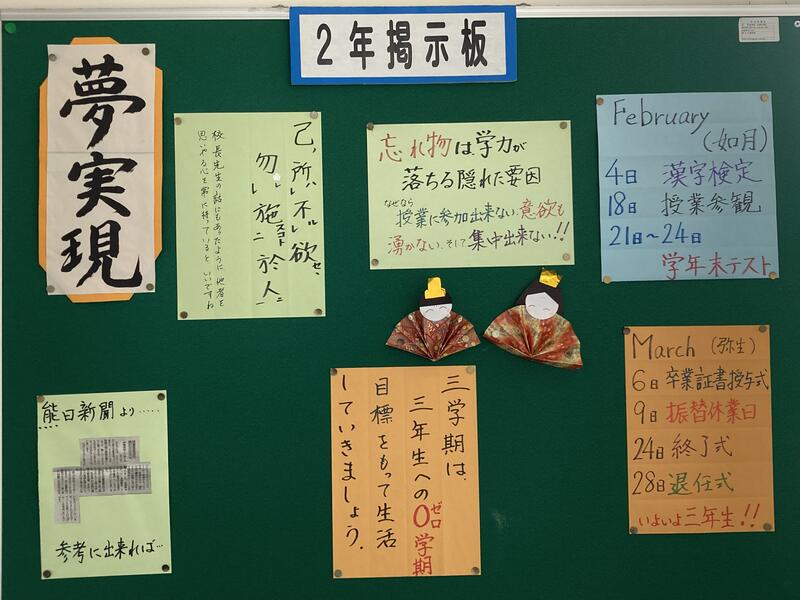 ２年掲示板
夢実現
己ノ所ハ不レル欲セ、
勿レ施二スコト於人一ニ
校長先生の話にもあったように他者を
思いやる心を常に持っていると いいですね
忘れ物は学力が
落ちる隠れた要因
なぜなら
授業に参加出来ない、意欲も
湧かない、そして集中出来ない!!
February
(如月)
4日 漢字検定
18日 授業参観
21日～24日
学年末テスト
March (弥生)
6日 卒業証書授与式
9日 振替休業日
24日 終了式
28日 退任式
いよいよ三年生!!
熊日新聞より……
参考に出来れば…
三学期は、
三年生への0学期
ゼロ
目標をもって生活
していきましょう。